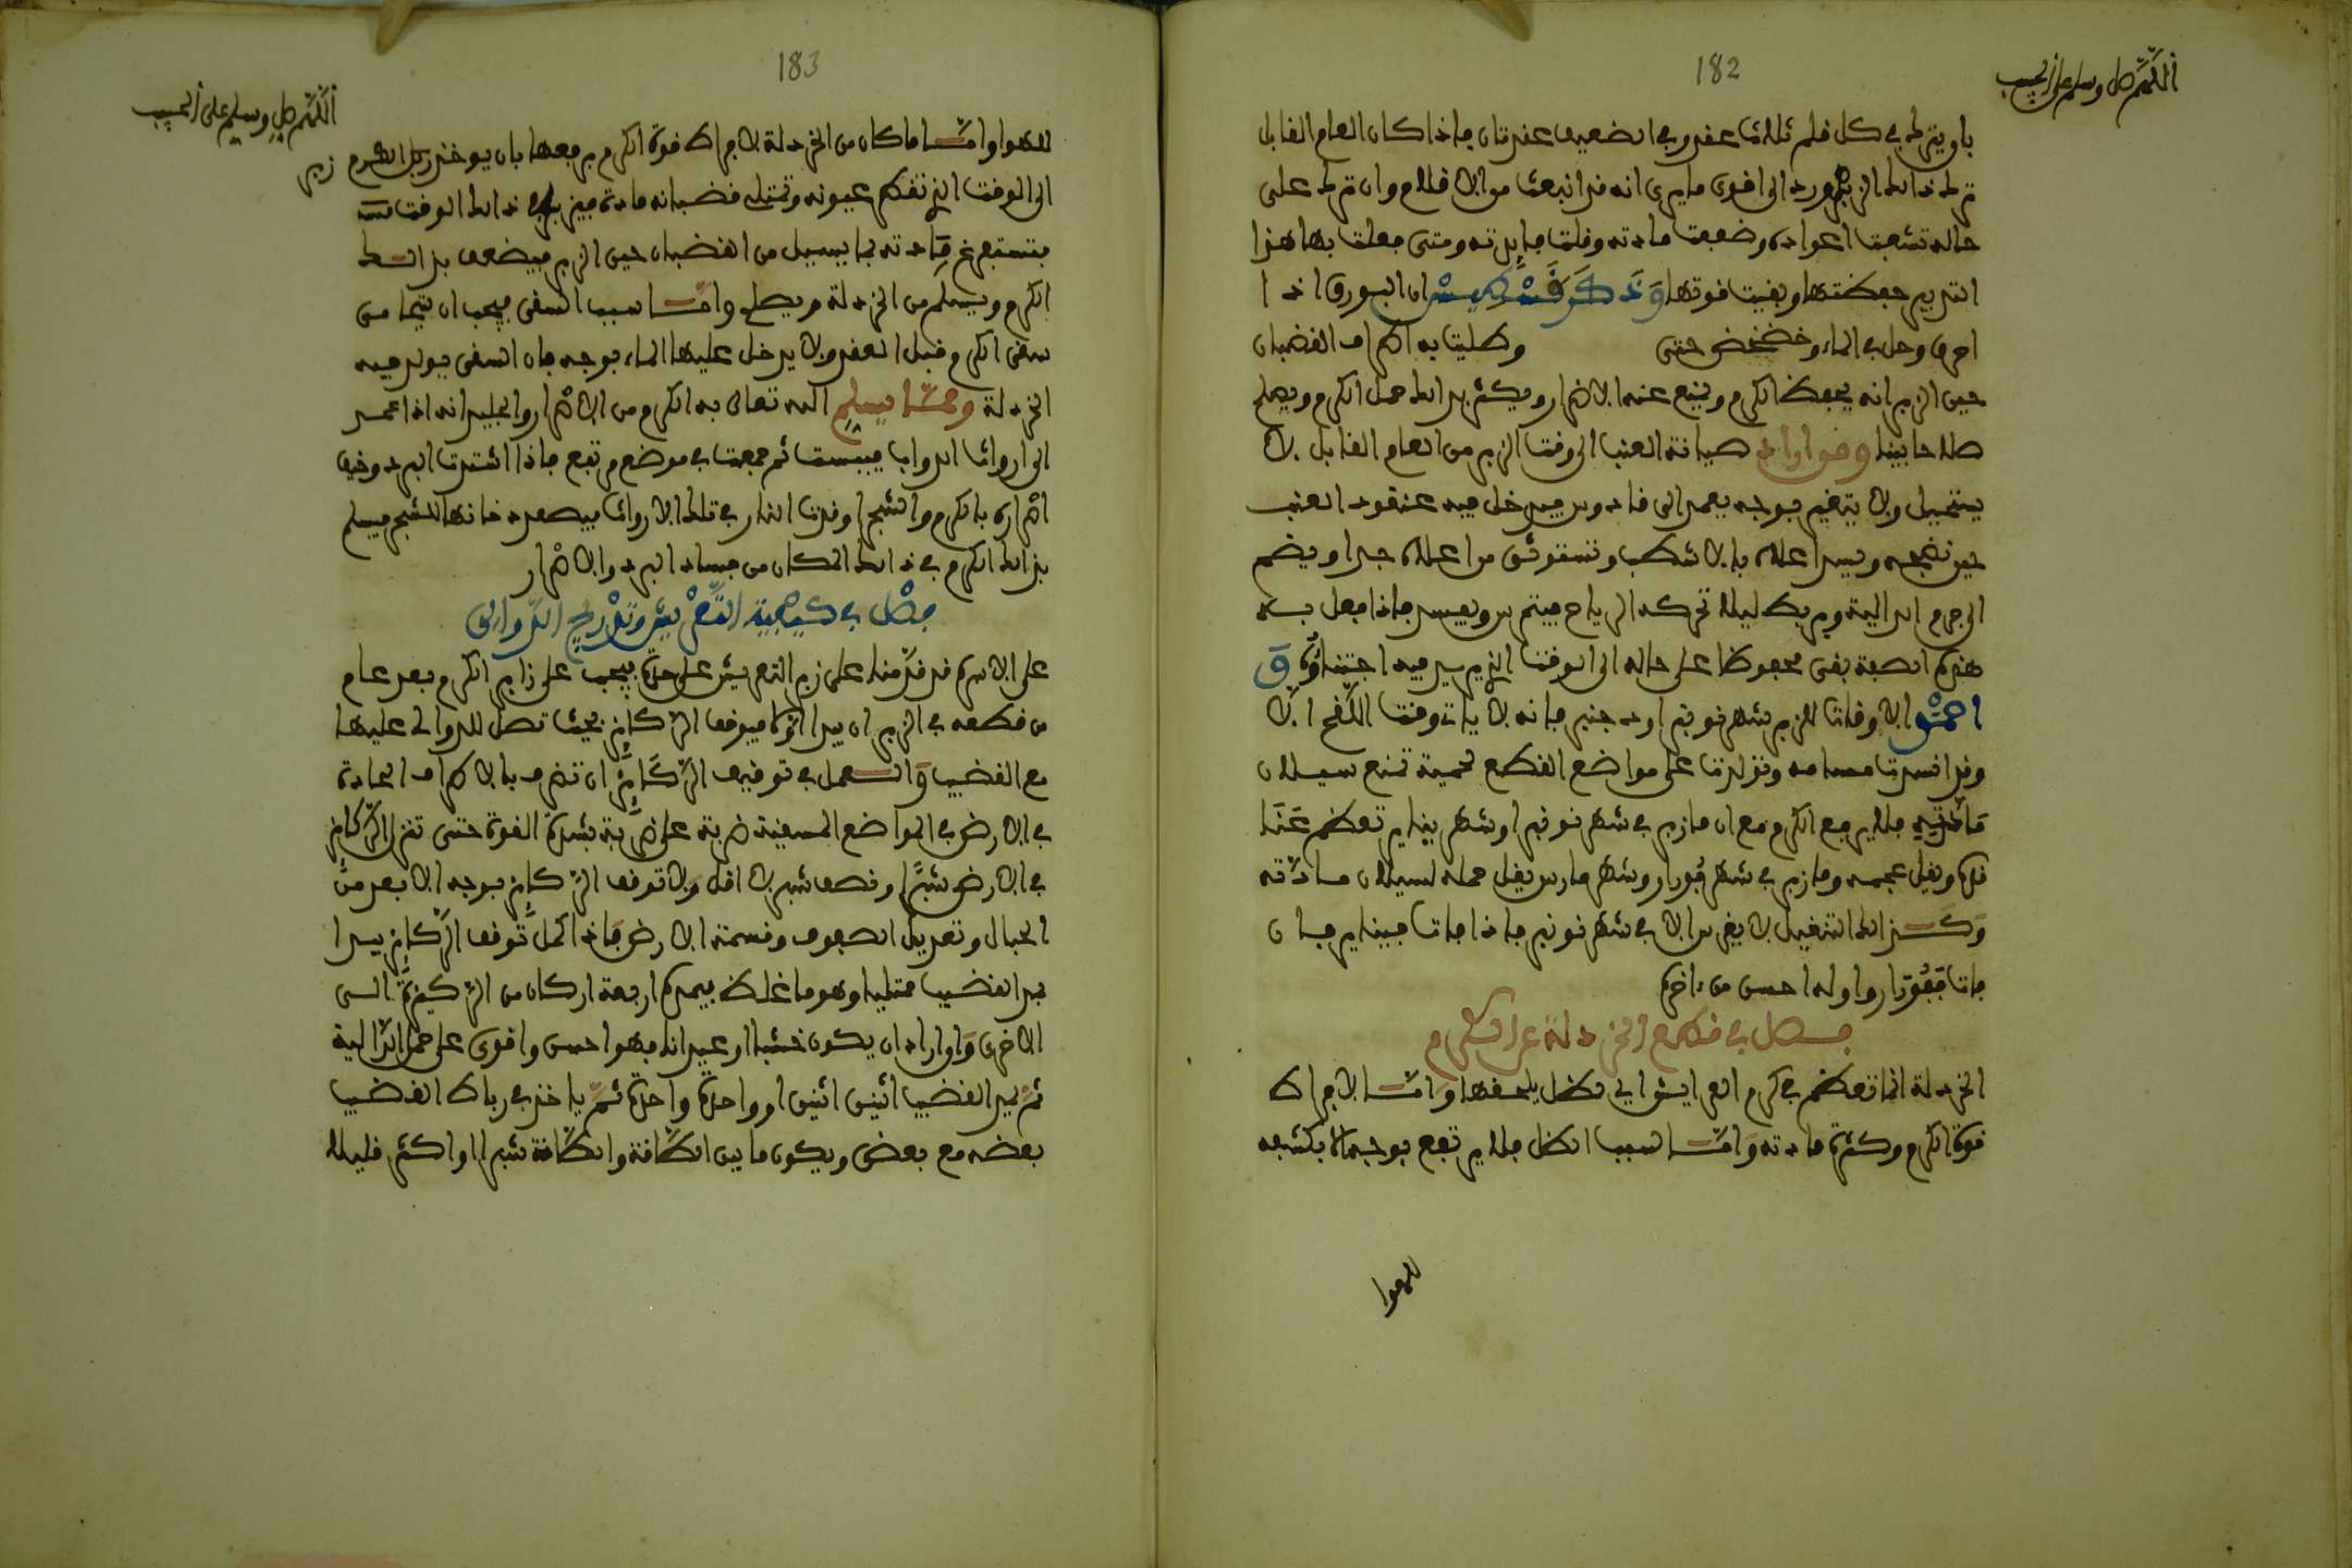 182
اللهم صل وسلم على الحبيب
بان يترك في كل قلم ثلاث عقد وفي الضعيف عقدتان فاذا كان العام القابل
ترك ذلك الزبر ورد الى اقوى ما يرى انه قد انبعث من الاقلام وان ترك على
حاله تشعبت اعواده وضعفت مادته وقلت فايدته ومتى فعلت بها هذا
التدبير حفظتها وبقيت قوتها وذكر قسطوس ان البورق اذا
احرق وحل في الماء وخضخض حتى وطليت به اطراف القضبان
حين الزبر انه يحفظ الكرم ويمنع عنه الاضرار ويكثر بذلك حمل الكرم ويصلح
صلاحا بينا ومن اراد صيانة العنب الى وقت الزبر من العام القابل لا
يستحيل ولا يتغير بوجه يعمد الى قادوس فيدخل فيه عنقود العنب
حين نضجه ويسد اعلاه بالاشطب وتستوثق من اعلاه جدا ويضم
الى جرم الدالية ويربط ليلا تحركه الرياح فيتمرس ويفسد فاذا فعل به
هذه الصفة بقي محفوظا على حاله الى الوقت الذي يريد فيه اجتناؤه و
احسن الاوقات للزبر شهر نونبر او دجنبر فانه لا يات وقت اللقح الا
وقد انسدت مسامه وتولدت على مواضع القطع لحمية تمنع سيلان
مادته فلا يدمع الكرم مع ان ما زبر في شهر نونبر او شهر يناير تعظم عنا
قده ويقل عجمه وما زبر في شهر فبرار وشهر مارس يقل حمله لسيلان مادته
وكذلك التثقيل لا يغرس الا في شهر نونبر فاذا فات فيناير فان
فات ففبرار واوله احسن من ءاخره
فصل في قطع الخردلة عن الكرم
الخردلة انما تعظم في كرم العرايش اي لظل يلحقها واما لافراط
قوة الكرم وكثرة مادته واما لسبب الظل فلا يرتفع بوجه الا بكشفه
للهوا
183
اللهم صل وسلم على الحبيب
للهوا واما ما كان من الخردلة لافراط قوة الكرم يرفعها بان يوخر زبل الكرم زبر
الى الوقت الذي تفتح عيونه وتمتلي قضبانه مادة فيزبر في ذلك الوقت
فتستفرغ مادته بما يسيل من القضبان حين الزبر فيضعف بذلك
الكرم ويسلم من الخردلة ويصلح واما سبب السقي فيجب ان يتحامى
سقي الكرم قبل العقد ولا يدخل عليها الماء بوجه فان السقي يولد فيه
الخردلة ومما يسلم الله تعالى به الكرم من الاضرار والجليد انه اذا عمد
الى ارواث الدواب فيبست ثم جمعت في موضع مرتفع فاذا اشتدت البرد وخيف
اضراره بالكرم والشجر اوقدت النار في تلك الارواث فيصعد دخانها للشجر فيسلم
بذلك الكرم في ذلك المكان من فساد البرد والاضرار
فصل في كيفية التعريش وتدريج الدوالي
على الاسرة قد قدمنا على زبر التعريش على حدة فيجب على زابر الكرم بعد عام
من قطعه في الزبر ان يبدا اولا فيوقف الركايز بحيث تصل للدوالي عليها
مع القضيب والعمل في توقيف الركايز ان تضرب بالاطراف الحادة
في الارض في المواضع المسقية ضربة على ضربة بشدة القوة حتى تنزل الركايز
في الارض شبرا ونصف شبر لا اقل ولا توقف الركايز بوجه الا بعد من
الحبال وتعديل الصفوف وقسمة الارض فاذا كمل توقف الركايز يبدا
بمد القضيب ممتليا وهو ما غلظ فيمده اربعة اركان من الركيزة الى
الاخرى واواراد ان يكون خشبا او عيدانا فهو احسن واقوى على حمل الدالية
ثم يمد القضيب اثنين اثنين او واحدة واحدة ثم ياخذ في رباط القضيب
بعضه مع بعض ويكون ما بين الطاقة والطاقة شبرا او اكثر قليلا